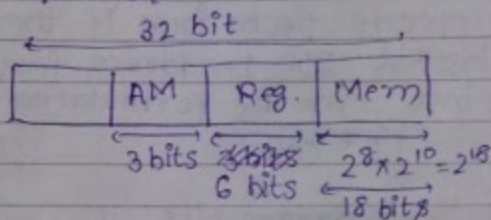 32 bit
AM Reg. Mem
3 bits 6 bits 2⁸ × 2¹⁰ = 2¹⁸
18 bits